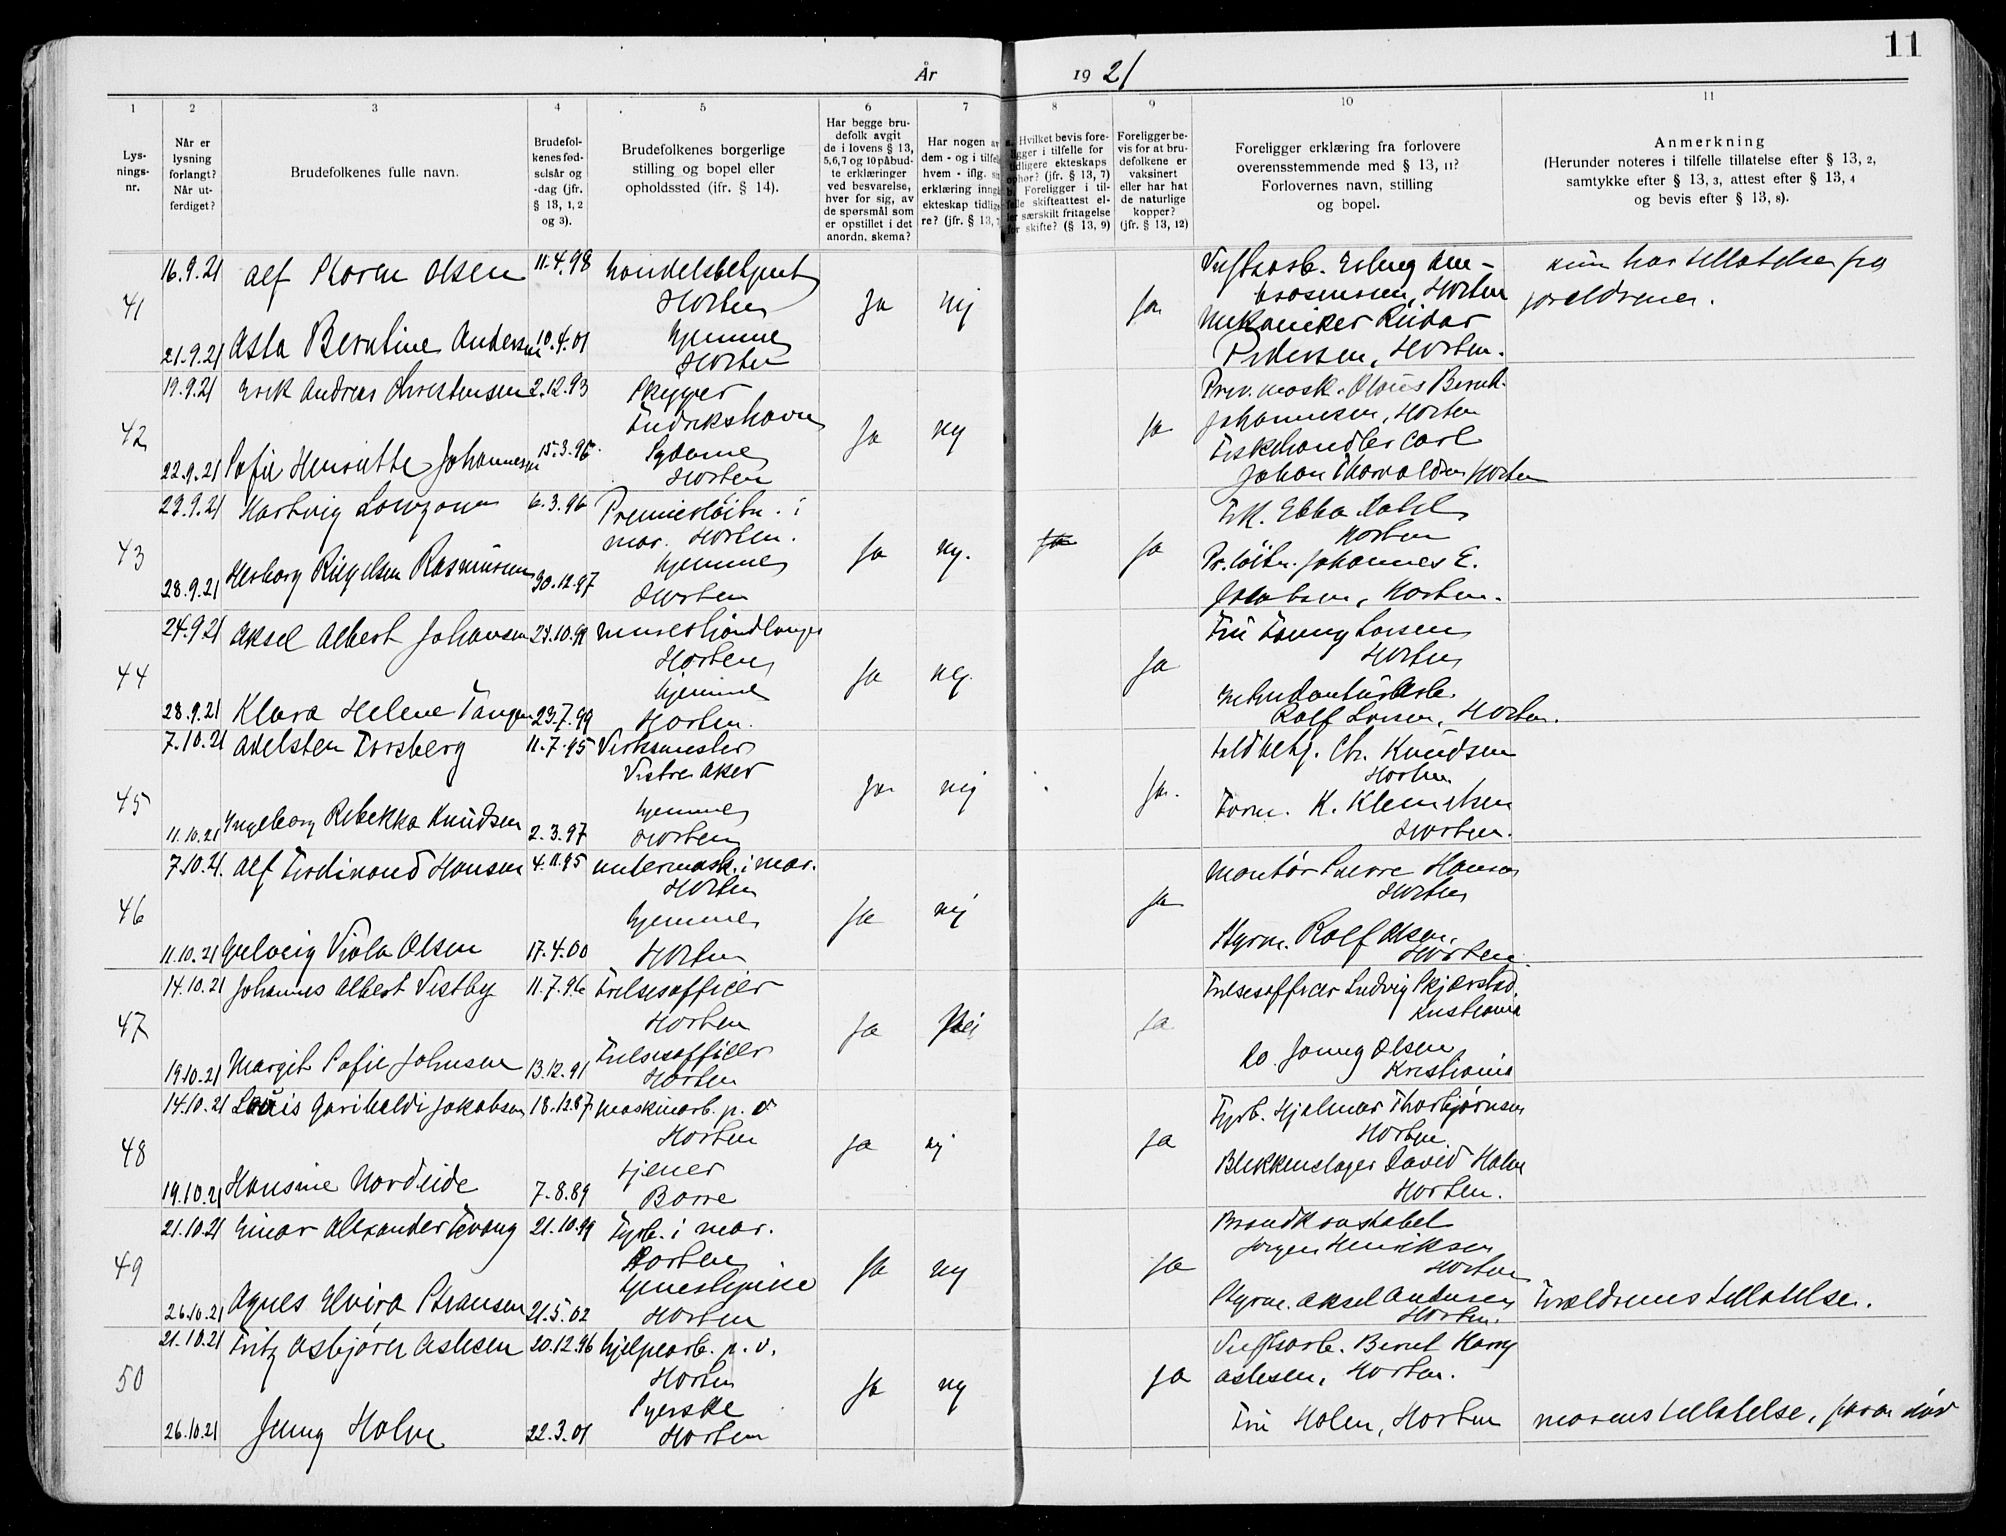 11
År 1921
1 2 3 4 5 6 7 8 9 10 11
Lys-
nings-
nr.
Når er
lysning
forlangt?
Når ut-
ferdiget?
Brudefolkenes fulle navn.
Brudefol-
kenes fød-
selsår og
-dag (jfr.
§ 13, 1, 2
og 3).
Brudefolkenes borgerlige
stilling og bopel eller
opholdssted (jfr. § 14).
Har begge bru-
defolk avgit
de i lovens § 13,
5,6,7 og 10 påbud-
te erklæringer
ved besvarelse,
hver for sig, av
de spørsmål som
er opstillet i det
anordn. skema?
Har nogen av
dem - og i tilfelle
hvem - iflg.
erklæring inngåt
ekteskap tidlige-
re? (jfr. § 13, 7
a. Hvilket bevis fore-
ligger i tilfelle for
tidligere ekteskaps
ophør? (jfr. § 13, 7)
b. Foreligger i til-
felle skifteattest el-
ler særskilt fritagelse
for skifte? (§ 13, 9)
Foreligger be-
vis for at bru-
defolkene er
vaksinert
eller har hat
de naturlige
kopper?
(jfr. § 13, 12)
Foreligger erklæring fra forlovere
overensstemmende med § 13, 11?
Forlovernes navn, stilling
og bopel.
Anmerkning
(Herunder noteres i tilfelle tillatelse efter § 13, 2,
samtykke efter § 13, 3, attest efter § 13, 4
og bevis efter § 13, 8).
41
16.9.21 Alf Olsen 11.4.98 handelsbetjent
Horten Ja nej Ja
Horten
kun har tillatelse fra
foreldrene.
21.9.21 Asta Berntine Andersen 10.4.01 hjemme
Horten
Mekaniker Reidar
Pedersen, Horten.
42
19.9.21 Erik Andreas Christensen 2.12.93 Skipper
Fredrikshavn Ja nej Ja
Johannesen, Horten
22.9.21 Sofie Henriette Johannesen 15.3.96
Horten
Fiskehandler Carl
Johan Thorvaldsen Horten
43
23.9.21 Hartvig 6.3.96 Premierløitn. i
mar. Horten. Ja nej. Ja
Frk. Ebba Dahl
Horten
28.9.21 Rasmussen 30.12.97 hjemme
Horten
Pr.løitn. Johannes E.
Jacobsen, Horten.
44
24.9.21 Aksel Albert Johansen murerhåndlanger
Horten Ja nej. Ja
Fru Fanny Larsen
Horten
28.9.21 Klara Helene Tangen 23.7.99 hjemme
Horten.
Rolf Larsen, Horten.
45
7.10.21 Adelsten Forsberg 11.7.95 Verksmester
Vestre Aker Ja nej Ja.
Chr. Knudsen
Horten.
11.10.21 Ingeborg Rebekka Knudsen 2.3.97 hjemme
Horten
Form. K. Klemetsen
Horten.
46
7.10.21. Alf Ferdinand Hansen 4.11.95 untermask. i mar.
Horten Ja nej Ja
Montør Sverre Hansen
Horten
11.10.21 Viola Olsen 17.4.00 hjemme
Horten
Styrm. Rolf Olsen,
Horten.
47
14.10.21 Johannes Albert Vestby 11.7.96 Frelsesofficer
Horten Ja Nei Ja
Frelsesofficer Ludvig Skjærstad,
Kristiania
19.10.21 Margit Sofie Johnsen 13.12.91 Frelsesofficer
Horten
Do. Jenny Olsen
Kristiania
48
14.10.21 Louis Garibaldi Jakobsen 18.12.87. maskinarb. p. v.
Horten Ja nej Ja
Fyrb. Hjalmar Thorbjørnsen
Horten
19.10.21 Hansine Nordeide 7.8.89 tjener
Borre
Blikkenslager David Holm
Horten.
49
21.10.21 Einar Alexander Tevang 21.10.99 Fyrb. i mar.
Horten Ja nej Ja
Brandkonstabel
Jørgen Henriksen
Horten
26.10.21 Agnes Elvira 21.5.02 tjenestepike
Horten
Styrm. Aksel Andersen
Horten.
Foreldrenes tillatelse.
50
21.10.21 Fritz Asbjørn Aslesen 20.12.96 hjelpearb. p. v.
Horten Ja nej Ja
Bernt Harry
Aslesen, Horten.
26.10.21 Jenny Holm 22.3.01 Syerske
Horten
Fru Holm, Horten
morens tillatelse, faren død